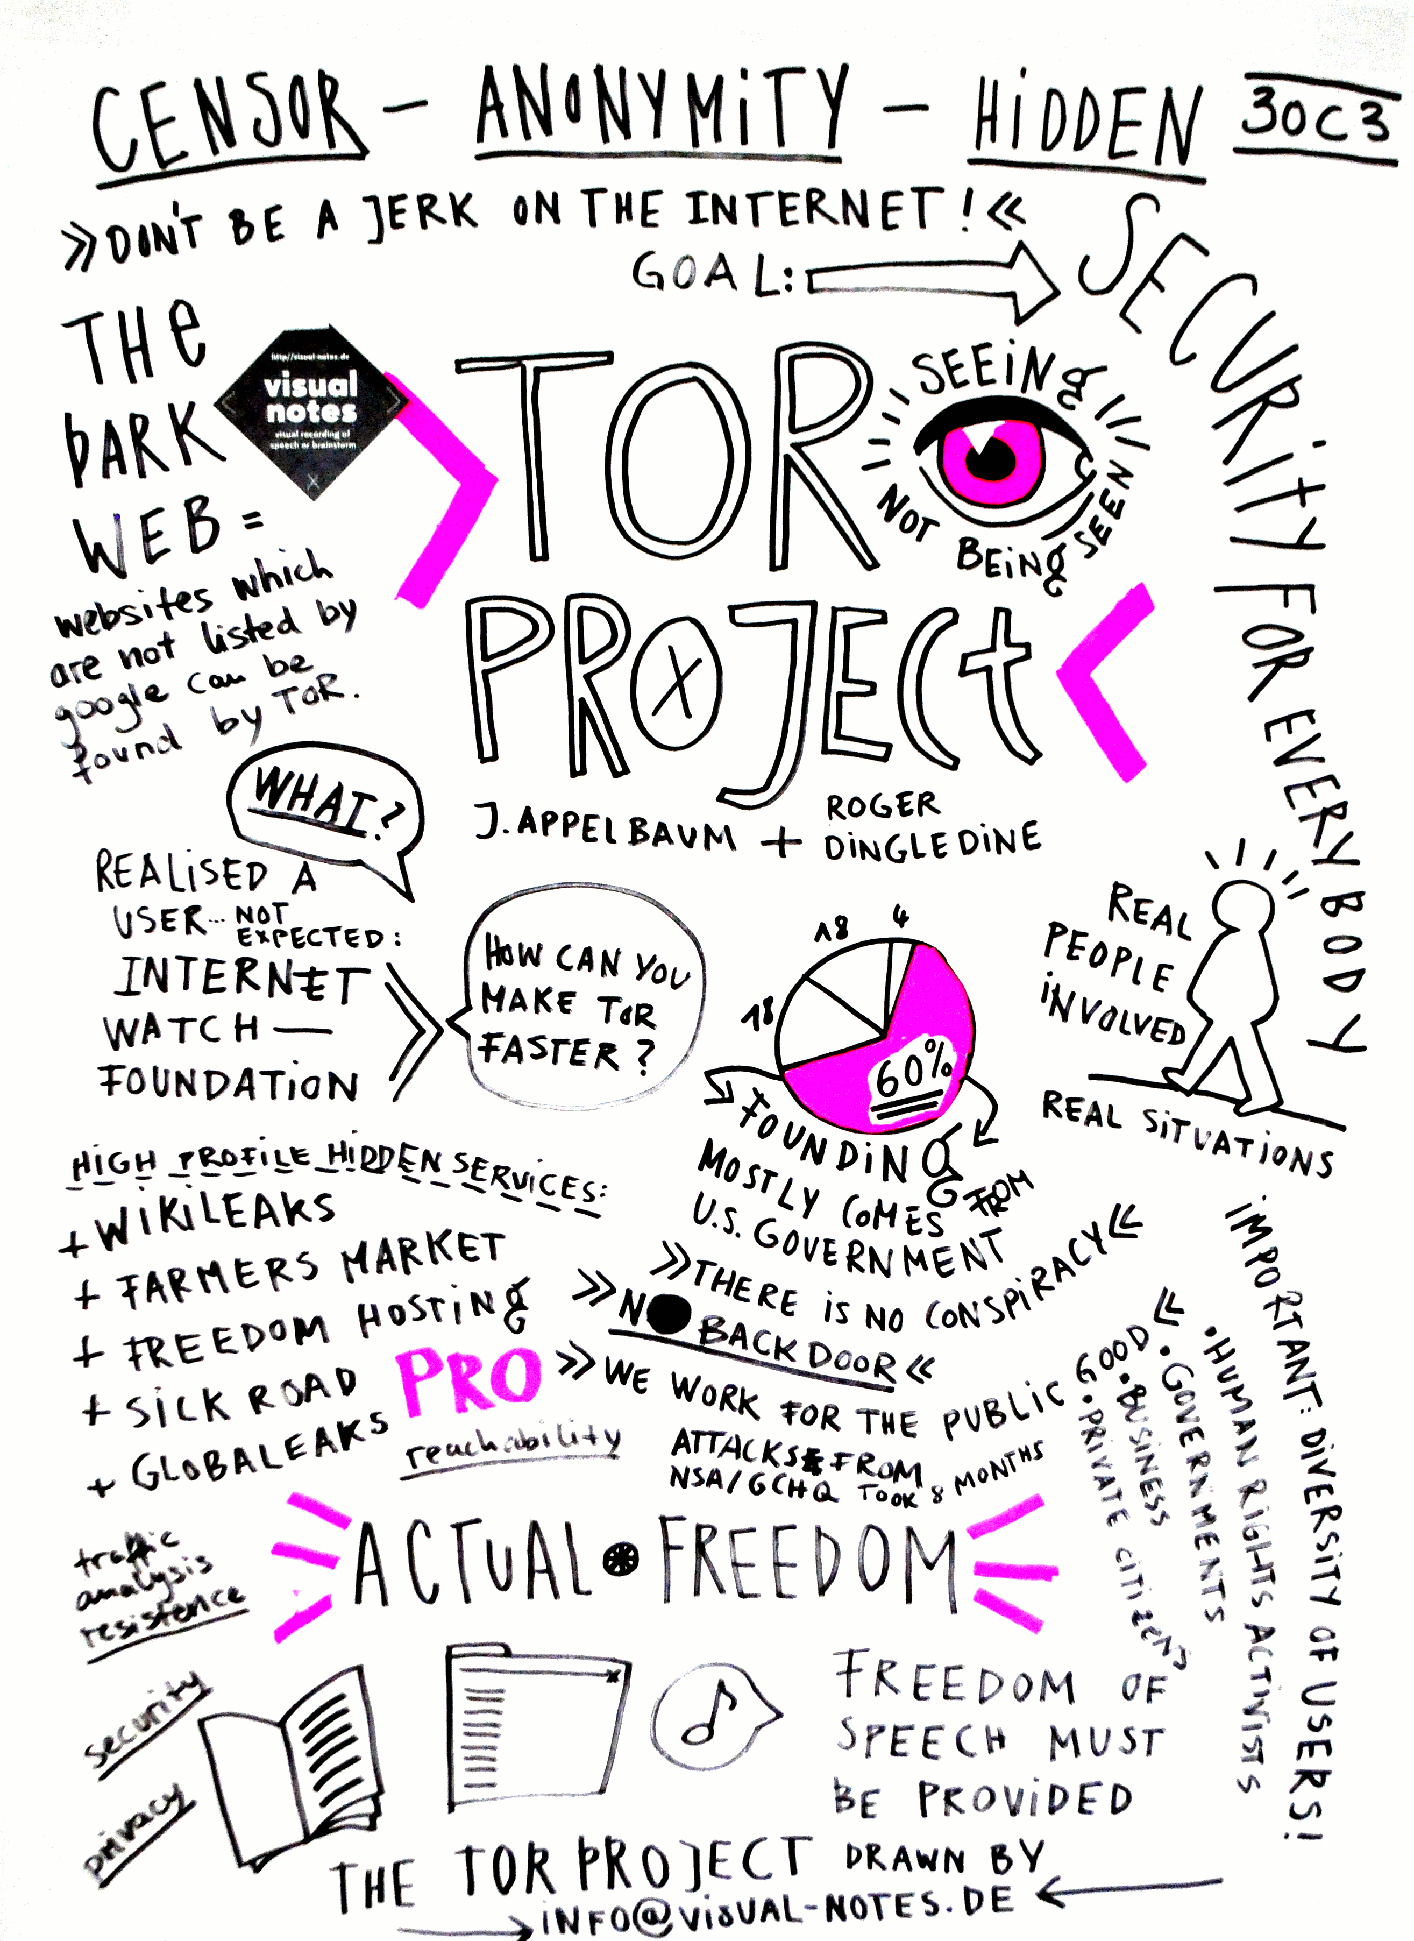 CENSOR - ANONYMITY - HIDDEN
30C3
»DON'T BE A JERK ON THE INTERNET!«
GOAL:
SECURITY FOR EVERYBODY
THE
DARK
WEB =
websites which
are not listed by
google can be
found by TOR.
http://visual-notes.de
visual
notes
visual recording of
speech or brainstorm
TOR
PROJECT
SEEING
NOT BEING SEEN
J. APPELBAUM + ROGER
DINGLEDINE
WHAT?
REALISED A
USER... NOT
EXPECTED:
INTERNET
WATCH —
FOUNDATION
HOW CAN YOU
MAKE TOR
FASTER?
18
18
4
60%
FOUNDING
MOSTLY COMES FROM
U.S. GOVERNMENT
REAL
PEOPLE
INVOLVED
REAL SITUATIONS
HIGH PROFILE HIDDEN SERVICES:
+ WIKILEAKS
+ FARMERS MARKET
+ FREEDOM HOSTING
+ SICK ROAD
+ GLOBALEAKS
PRO
reachability
»THERE IS NO CONSPIRACY«
»NO BACKDOOR«
»WE WORK FOR THE PUBLIC GOOD«
ATTACKS FROM
NSA/GCHQ TOOK 8 MONTHS
IMPORTANT: DIVERSITY OF USERS!
• HUMAN RIGHTS ACTIVISTS
• GOVERNMENTS
• BUSINESS
• PRIVATE CITIZENS
ACTUAL FREEDOM
traffic
analysis
resistence
security
privacy
FREEDOM OF
SPEECH MUST
BE PROVIDED
THE TOR PROJECT DRAWN BY
INFO@VISUAL-NOTES.DE